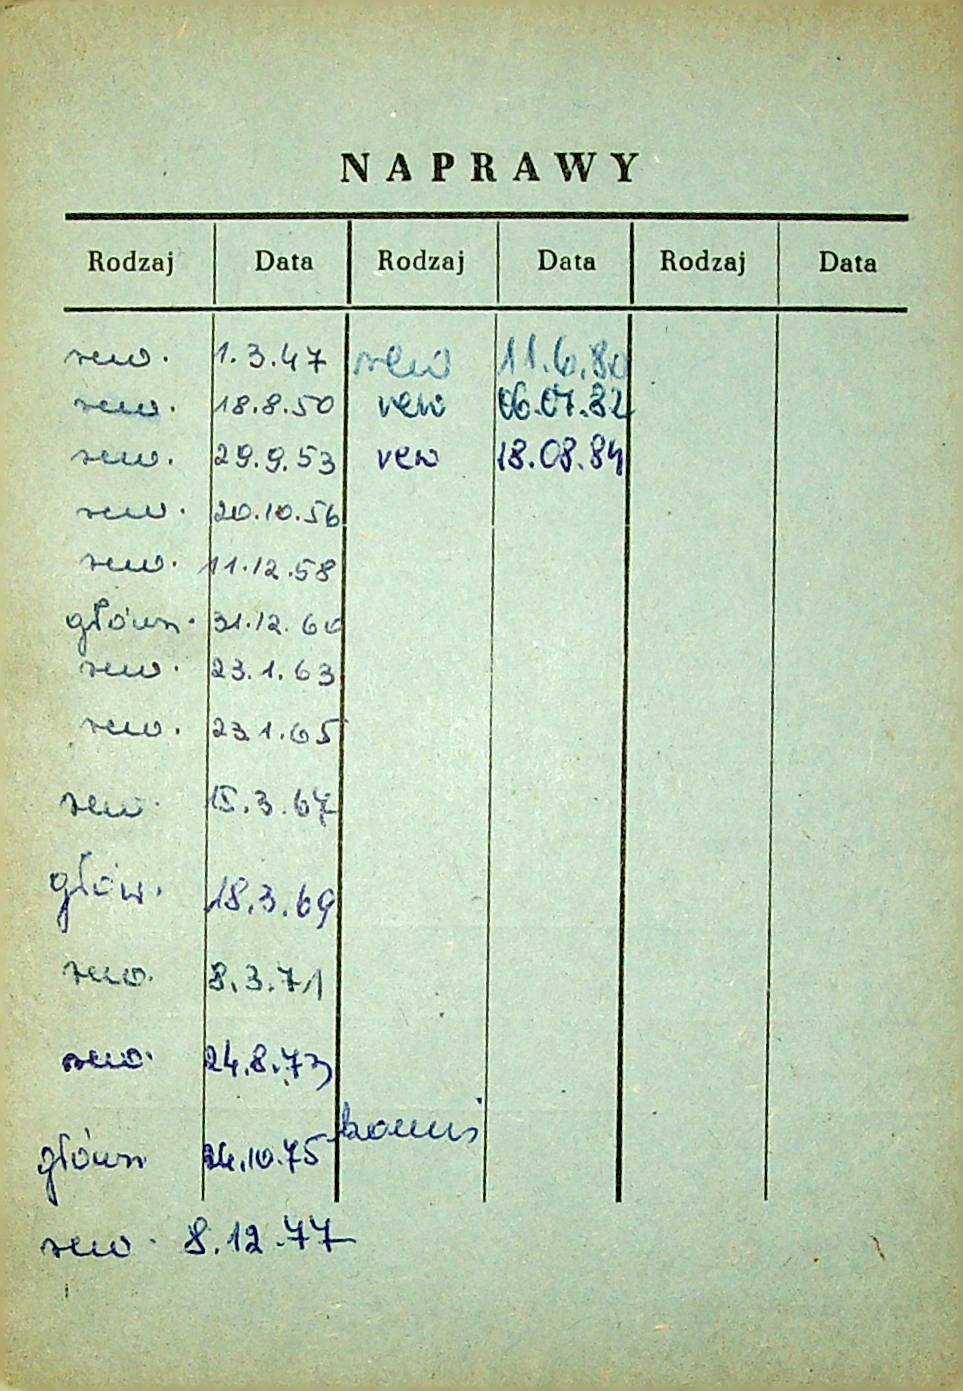 NAPRAWY
Rodzaj Data Rodzaj Data Rodzaj Data
rew. 1.3.47 rew 11.6.80
rew. 18.8.50 rew 06.07.82
rew. 29.9.53 rew 18.08.84
rew. 20.10.56
rew. 11.12.58
główn. 31.12.60
rew. 23.1.63
rew. 23.1.65
rew. 15.3.67
głów. 18.3.69
rew. 8.3.71
rew. 24.8.73
główn 24.10.75
rew. 8.12.77